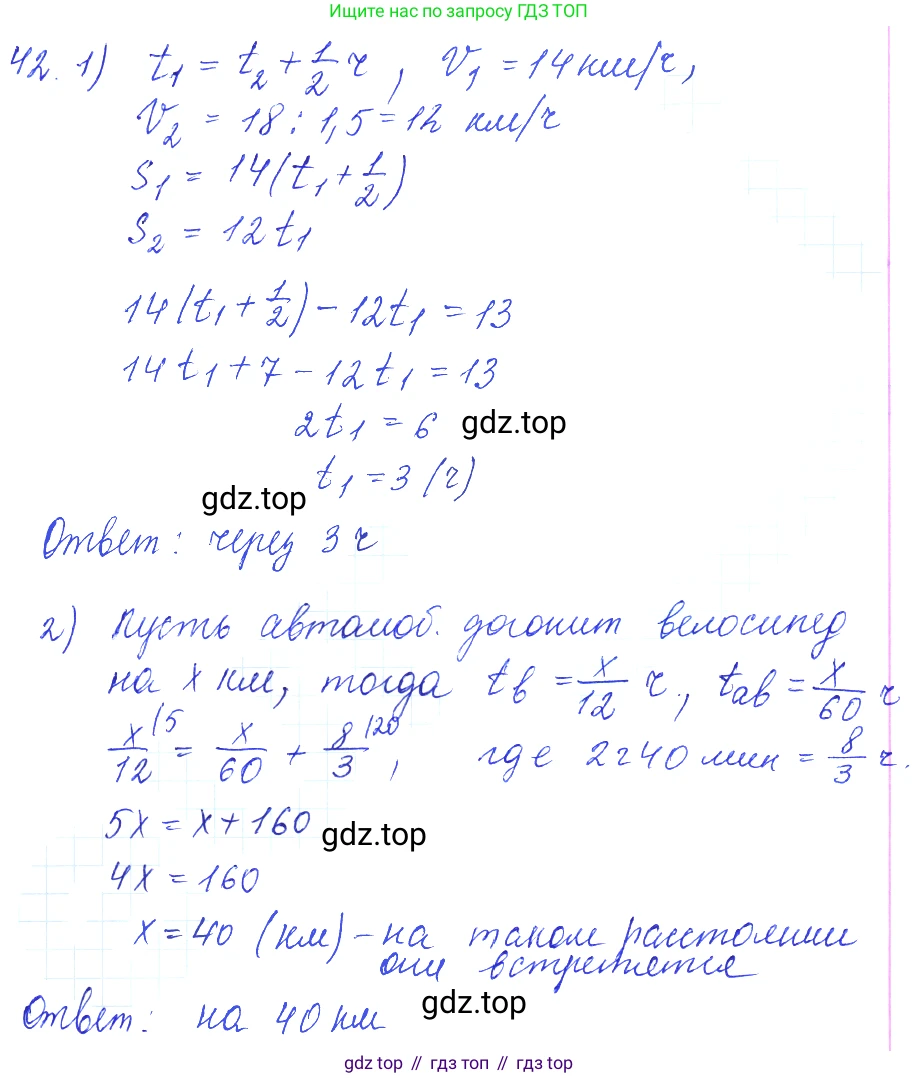 Ищите нас по запросу ГДЗ ТОП
42. 1) t₁ = t₂ + 1/2 ч, V₁ = 14 км/ч,
V₂ = 18 : 1,5 = 12 км/ч
S₁ = 14(t₁ + 1/2)
S₂ = 12t₁
14(t₁ + 1/2) - 12t₁ = 13
14t₁ + 7 - 12t₁ = 13
2t₁ = 6 gdz.top
t₁ = 3 (ч)
gdz.top
Ответ: через 3 ч
2) Пусть автомоб. догонит велосипед
на x км, тогда tв = x/12 ч, tав = x/60 ч
x/12 |5 = x/60 + 8/3 |20, где 2ч40 мин = 8/3 ч.
5x = x + 160
gdz.top
4x = 160
x = 40 (км) – на таком расстоянии
они встретятся
gdz.top
Ответ: на 40 км
gdz top // гдз топ // gdz top